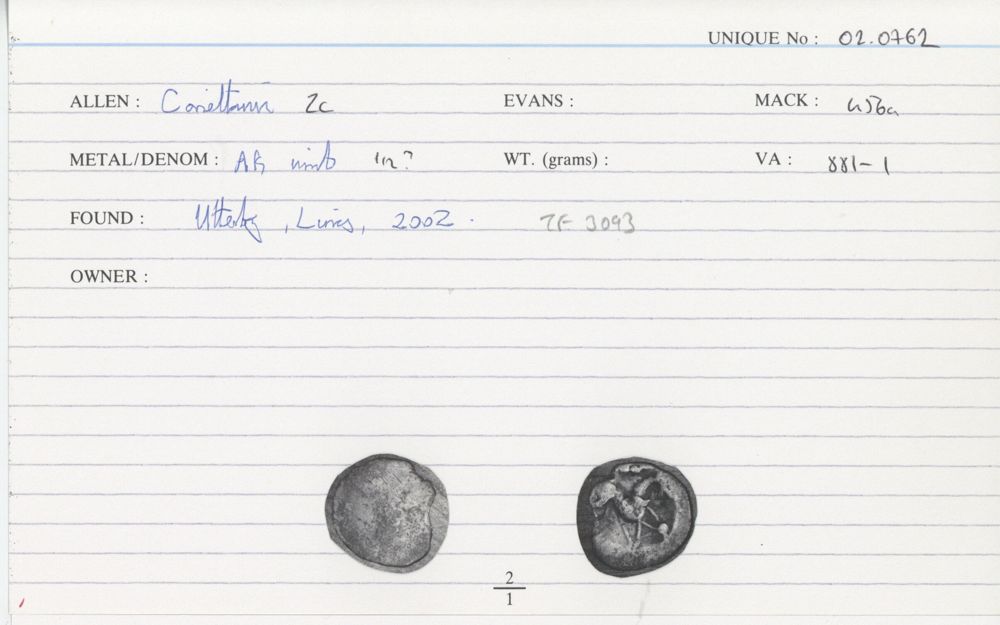 UNIQUE No : 02.0762
ALLEN : Corieltauvi 2c EVANS : MACK :
METAL/DENOM : AR unit WT. (grams) : VA : 881-1
FOUND : Utterby, Lincs, 2002. TF 3093
OWNER :
2
1